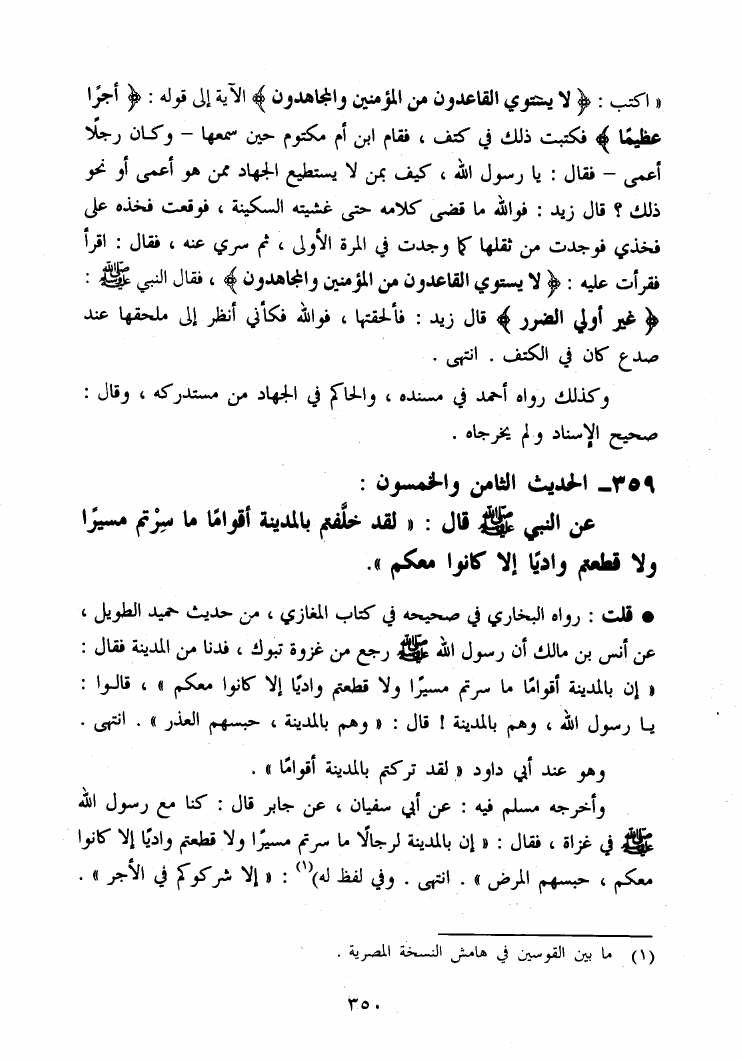 « اكتب : ﴿ لا يستوي القاعدون من المؤمنين والمجاهدون ﴾ الآية إلى قوله : ﴿ أجرًا
عظيمًا ﴾ فكتبت ذلك في كتف ، فقام ابن أم مكتوم حين سمعها – وكان رجلًا
أعمى – فقال : يا رسول الله ، كيف بمن لا يستطيع الجهاد ممن هو أعمى أو نحو
ذلك ؟ قال زيد : فوالله ما قضى كلامه حتى غشيته السكينة ، فوقعت فخذه على
فخذي فوجدت من ثقلها كما وجدت في المرة الأولى ، ثم سري عنه ، فقال : اقرأ
فقرأت عليه : ﴿ لا يستوي القاعدون من المؤمنين والمجاهدون ﴾ ، فقال النبي ﷺ :
﴿ غير أولي الضرر ﴾ قال زيد : فألحقتها ، فوالله فكأني أنظر إلى ملحقها عند
صدع كان في الكتف . انتهى .
وكذلك رواه أحمد في مسنده ، والحاكم في الجهاد من مستدركه ، وقال :
صحيح الإسناد ولم يخرجاه .
٣٥٩ـ الحديث الثامن والخمسون :
عن النبي ﷺ قال : « لقد خلَّفتم بالمدينة أقوامًا ما سِرْتم مسيرًا
ولا قطعتم واديًا إلا كانوا معكم ».
● قلت : رواه البخاري في صحيحه في كتاب المغازي ، من حديث حميد الطويل ،
عن أنس بن مالك أن رسول الله ﷺ رجع من غزوة تبوك ، فدنا من المدينة فقال :
« إن بالمدينة أقوامًا ما سرتم مسيرًا ولا قطعتم واديًا إلا كانوا معكم » ، قالوا :
يا رسول الله ، وهم بالمدينة ! قال : « وهم بالمدينة ، حبسهم العذر » . انتهى .
وهو عند أبي داود « لقد تركتم بالمدينة أقوامًا » .
وأخرجه مسلم فيه : عن أبي سفيان ، عن جابر قال : كنا مع رسول الله
ﷺ في غزاة ، فقال : « إن بالمدينة لرجالًا ما سرتم مسيرًا ولا قطعتم واديًا إلا كانوا
معكم ، حبسهم المرض » . انتهى . وفي لفظ له)(١) : « إلا شركوكم في الأجر » .
(١) ما بين القوسين في هامش النسخة المصرية .
٣٥٠